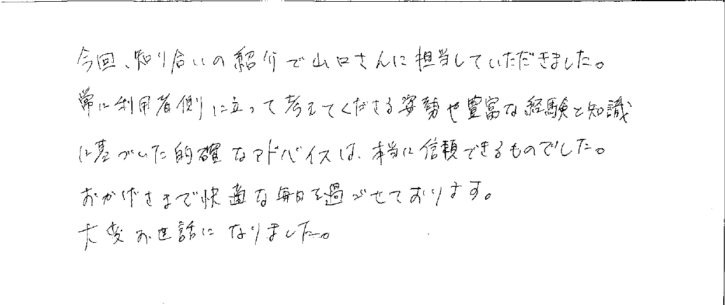 今回、知り合いの紹介で山口さんに担当していただきました。
常に利用者側に立って考えてくださる姿勢や豊富な経験と知識
に基づいた的確なアドバイスは、本当に信頼できるものでした。
おかげさまで快適な毎日を過ごせております。
大変お世話になりました。